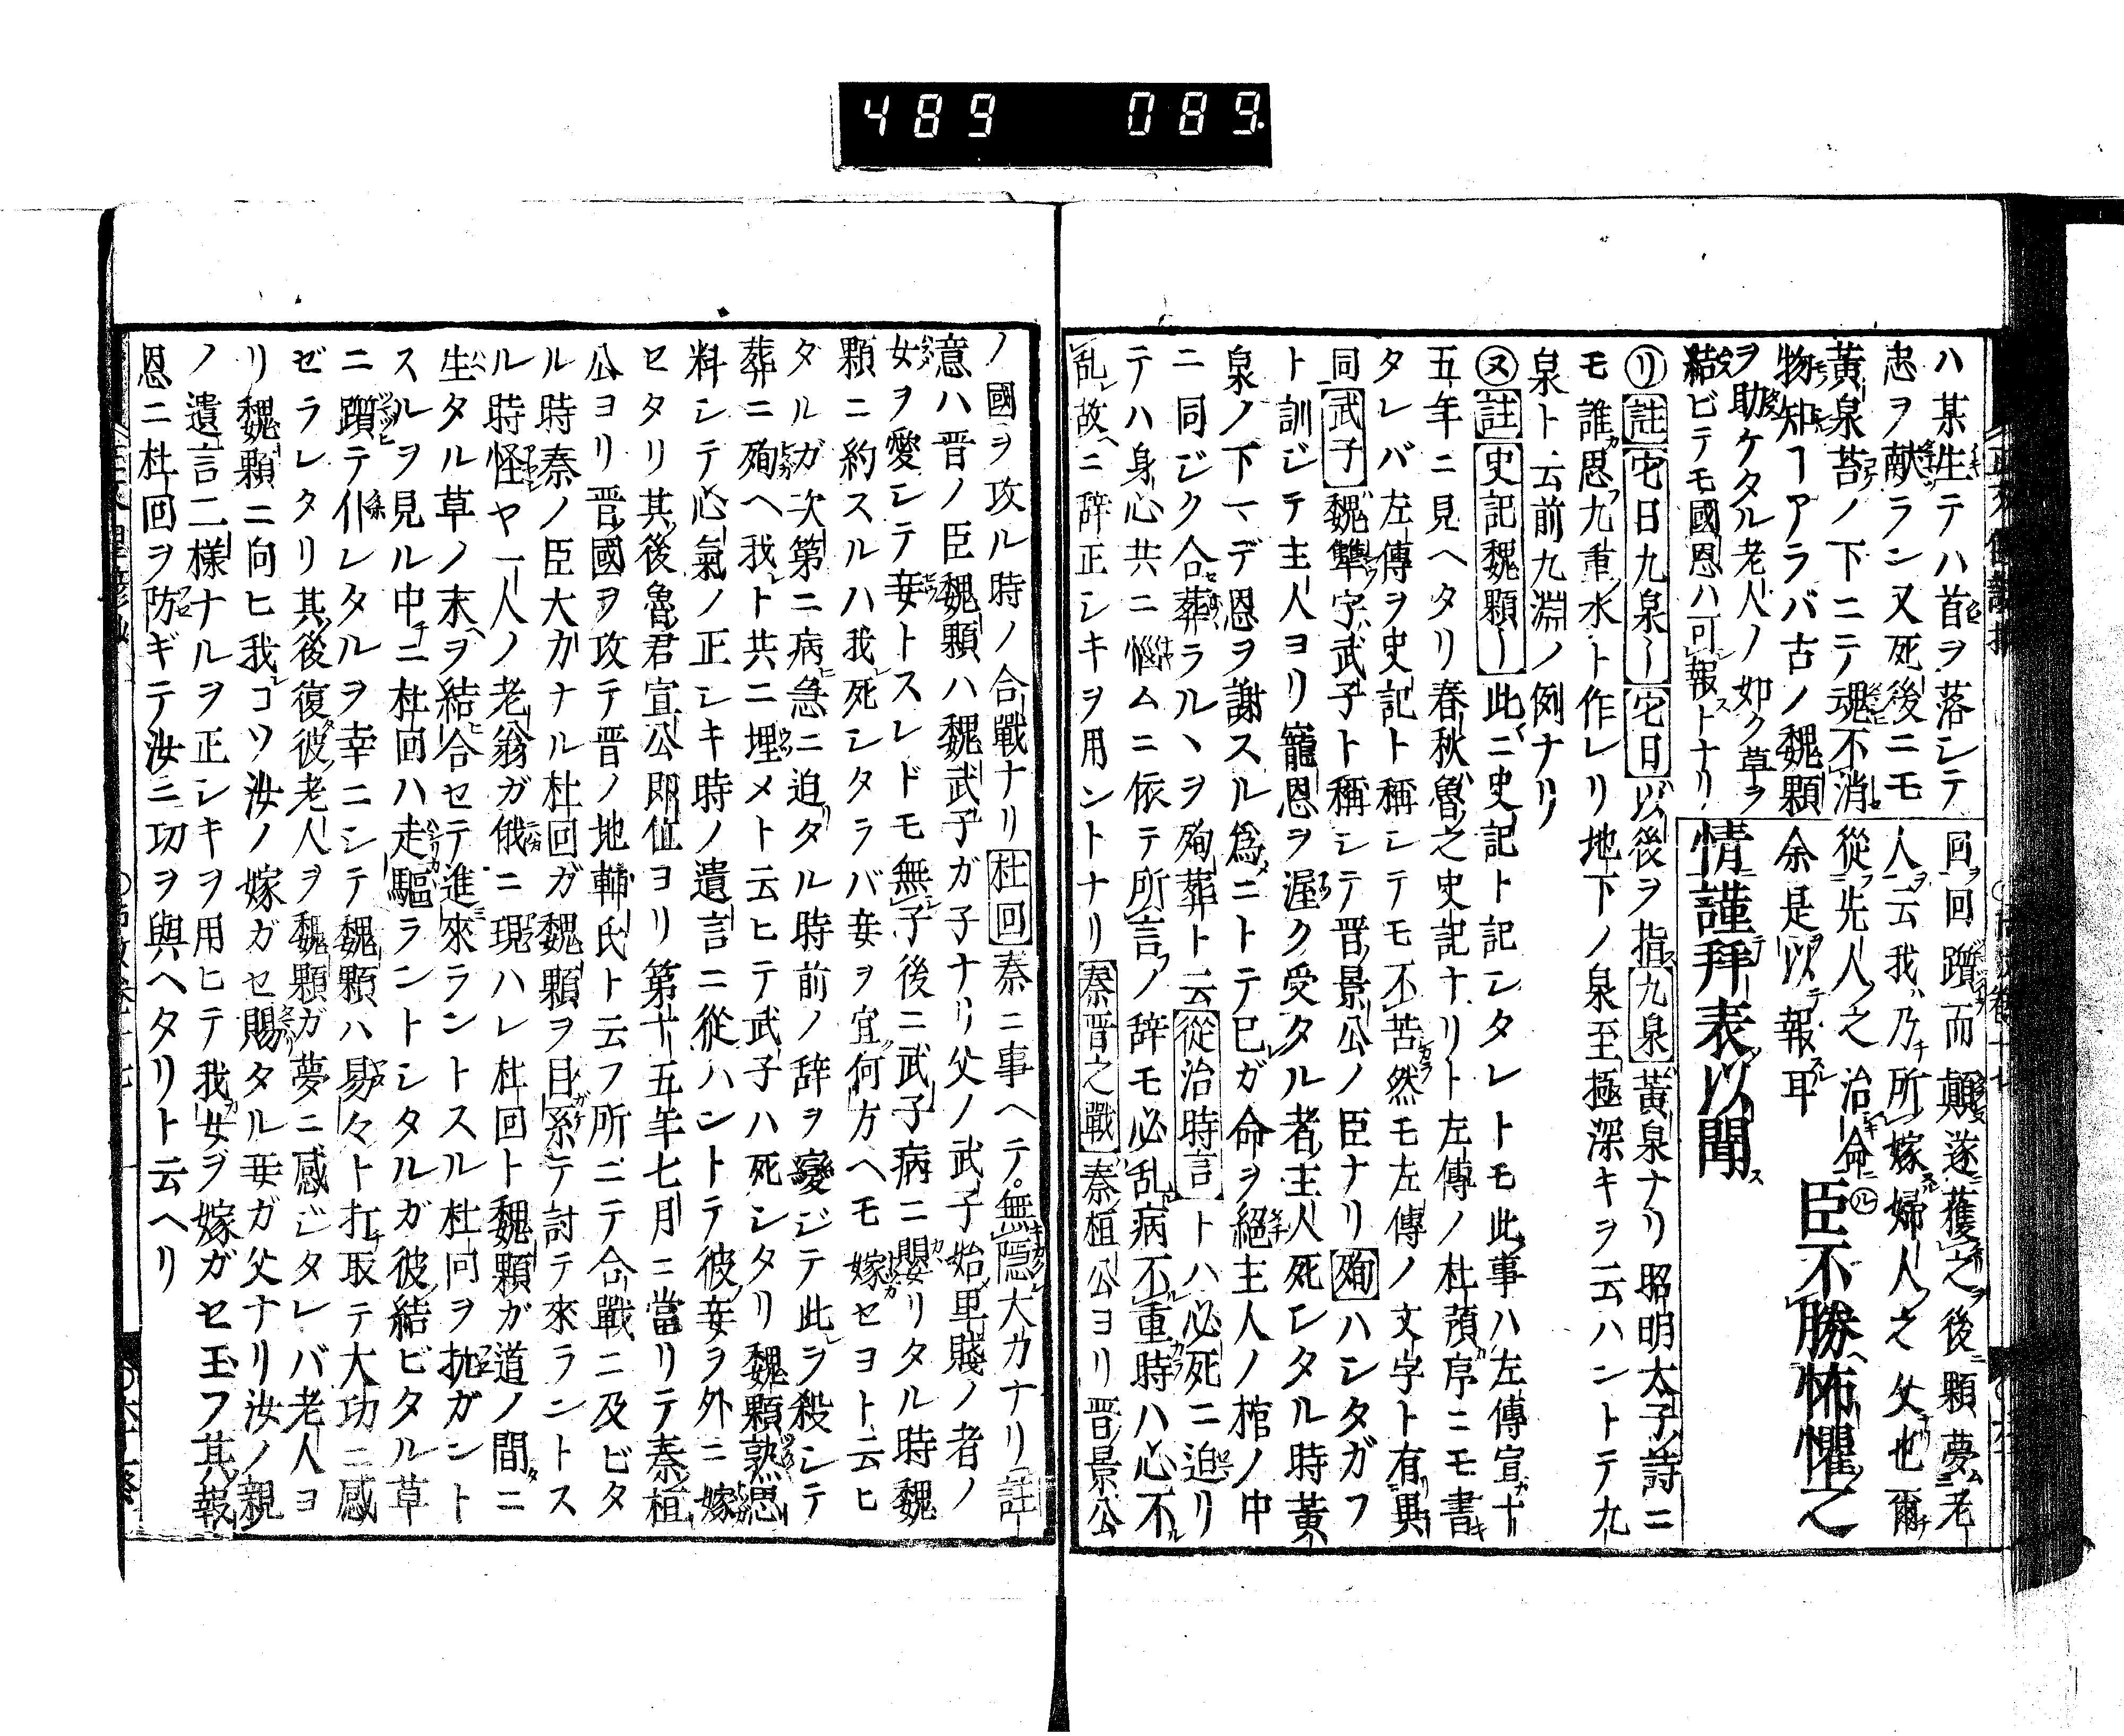 489 089.
ハ某生テハ首ヲ落シテ
忠ヲ献ラン又死後ニモ
黃泉苔ノ下ニテ魂不消
物知ヿアラバ古ノ魏顆
ヲ助ケタル老人ノ如ク草ヲ
結ビテモ國恩ハ可報トナリ
回回躓而顛遂獲之後顆夢老
人云我乃所嫁婦人之父也爾
從先人之治命㋸臣不勝怖懼之
余是以報耳
情謹拜表以聞
㋷註宅日九泉〡宅日以後ヲ指九泉黃泉ナリ昭明太子詩ニ
モ誰思九重水ト作レリ地下ノ泉至極深キヲ云ハントテ九
泉ト云前九淵ノ例ナリ
㋦註史記魏顆〡此ニ史記ト記シタレトモ此事ハ左傳宣十
五年ニ見ヘタリ春秋魯之史記ナリト左傳ノ杜預序ニモ書
タレバ左傳ヲ史記ト稱シテモ不苦然モ左傳ノ文字ト有異
同武子魏犨字武子ト稱シテ晋景公ノ臣ナリ殉ハシタガフ
ト訓ジテ主人ヨリ寵恩ヲ渥ク受タル者主人死シタル時黃
泉ノ下マデ恩ヲ謝スル爲ニトテ已ガ命ヲ絕主人ノ棺ノ中
ニ同ジク合葬ラルヽヲ殉葬ト云從治時言トハ必死ニ迫リ
テハ身心共ニ惱ムニ依テ所言ノ辞モ必乱病不重時ハ心不
乱故ニ辞正シキヲ用ントナリ秦晋之戰秦桓公ヨリ晋景公
ノ國ヲ攻ル時ノ合戰ナリ杜回秦ニ事ヘテ無隠大力ナリ註
意ハ晋ノ臣魏顆ハ魏武子ガ子ナリ父ノ武子始卑賤ノ者ノ
女ヲ愛シテ妾トスレドモ無子後ニ武子病ニ嬰リタル時魏
顆ニ約スルハ我死シタラバ妾ヲ宜何方ヘモ嫁セヨト云ヒ
タルガ次第ニ病急ニ迫タル時前ノ辞ヲ變ジテ此ヲ殺シテ
葬ニ殉ヘ我ト共ニ埋メト云ヒテ武子ハ死シタリ魏顆熟思
料シテ心氣ノ正シキ時ノ遺言ニ從ハントテ彼妾ヲ外ニ嫁
セタリ其後魯君宣公即位ヨリ第十五年七月ニ當リテ秦桓
公ヨリ晋國ヲ攻テ晋ノ地輔氏ト云フ所ニテ合戰ニ及ビタ
ル時秦ノ臣大力ナル杜回ガ魏顆ヲ目系テ討テ來ラントス
ル時怪ヤ一人ノ老翁ガ俄ニ現ハレ杜回ト魏顆ガ道ノ間ニ
生タル草ノ末ヲ結合セテ進來ラントスル杜回ヲ抗ガント
スルヲ見ル中ニ杜回ハ走驅ラントシタルガ彼結ビタル草
ニ躓テ仆レタルヲ幸ニシテ魏顆ハ易々ト打取テ大功ニ感
ゼラレタリ其後復彼老人ヲ魏顆ガ夢ニ感ジタレバ老人ヨ
リ魏顆ニ向ヒ我コソ汝ノ嫁ガセ賜タル妾ガ父ナリ汝ノ親
ノ遺言二樣ナルヲ正シキヲ用ヒテ我女ヲ嫁ガセ玉フ其報
恩ニ杜回ヲ防ギテ汝ニ功ヲ與ヘタリト云ヘリ